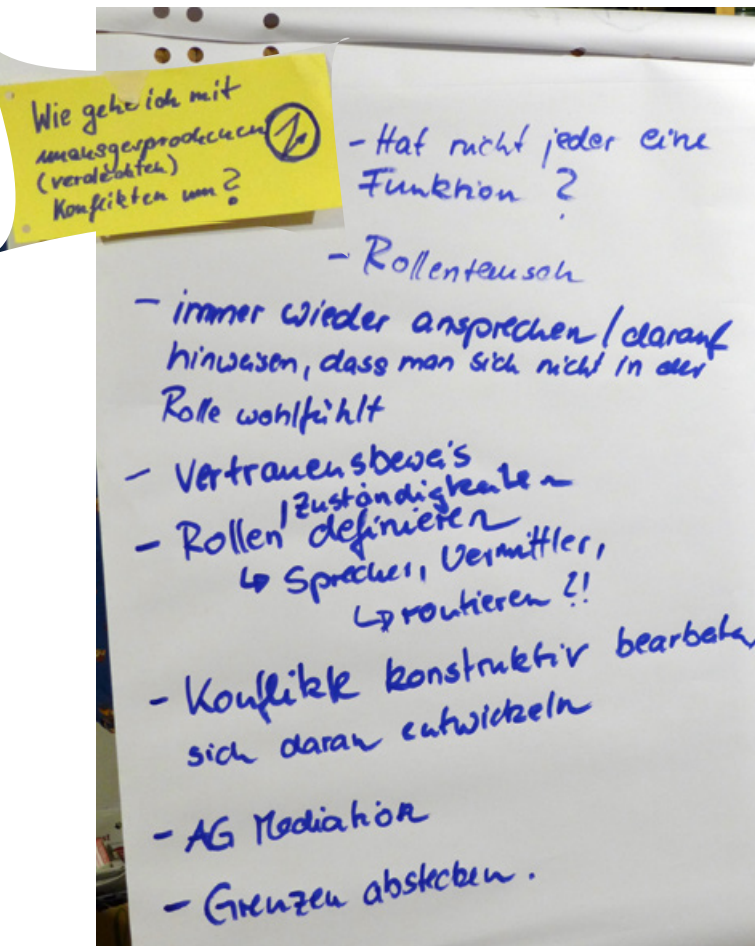 Wie gehe ich mit
unausgesprochenen
(verdeckten)
Konflikten um?
1.
- Hat nicht jeder eine
Funktion ?
- Rollentausch
- immer wieder ansprechen / darauf
hinweisen, dass man sich nicht in der
Rolle wohlfühlt
- Vertrauensbeweis
/ Zuständigkeiten
- Rollen definieren
↳ Sprecher, Vermittler,
↳ routieren ?!
- Konflikte konstruktiv bearbeiten
sich daran entwickeln
- AG Mediation
- Grenzen abstecken.